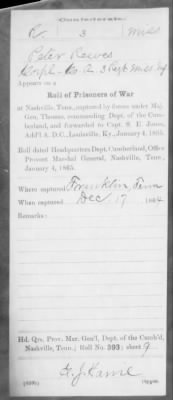 (Confederate.)
R. 3 Miss
Peter Reeves
Corpl. Co. A, 3 Regt. Miss. Inf
Appears on a
Roll of Prisoners of War
at Nashville, Tenn., captured by forces under Maj.
Gen. Thomas, commanding Dept. of the Cum-
berland, and forwarded to Capt. S. E. Jones,
Add'l A. D. C., Louisville, Ky., January 4, 1865.
Roll dated Headquarters Dept. Cumberland, Office
Provost Marshal General, Nashville, Tenn.,
January 4, 1865.
Where captured Franklin, Tenn
When captured Dec 17, 1864
Remarks:
Hd. Qrs. Prov. Mar. Gen'l, Dept. of the Cumb'd,
Nashville, Tenn.; Roll No. 393; sheet 9
Copyist.